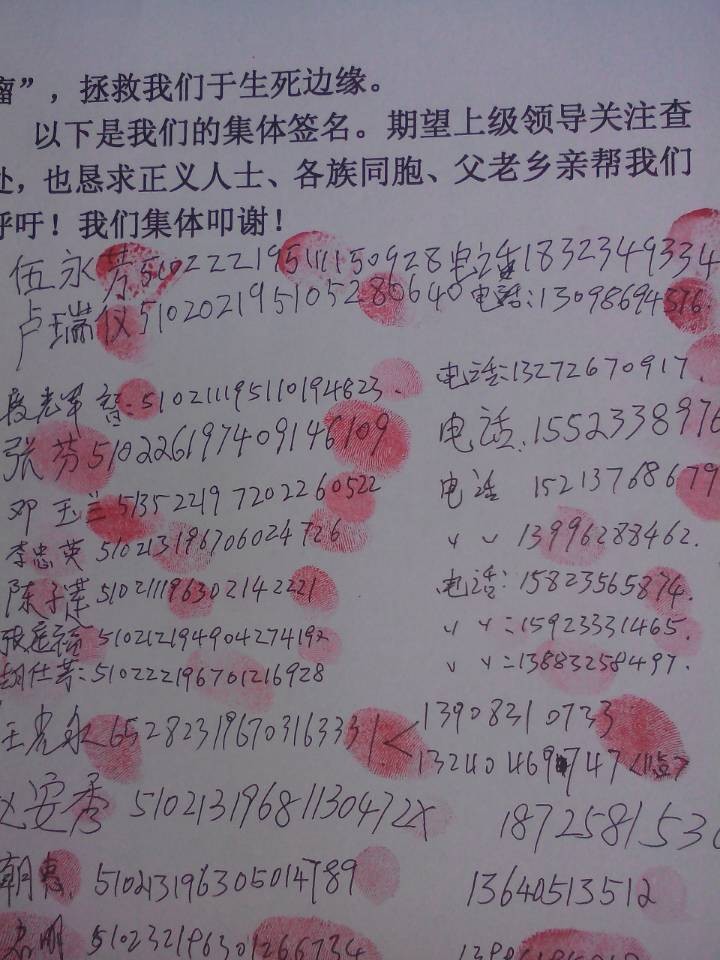 瘤”，拯救我们于生死边缘。
以下是我们的集体签名。期望上级领导关注查
处，也恳求正义人士、各族同胞、父老乡亲帮我们
呼吁！我们集体叩谢！
伍永芳 510222195111150928 电话 1832349334
卢瑞仪 510202195105280640 电话：13098694376.
510211195110194823. 电话：13272670917.
张芬 510226197409146109 电话. 1552338976
邓玉兰 513522197202260522 电话 1521376867
李忠英 510213196706024726 〃 13996288462.
陈子莲 510211196302142221 电话：15823565874.
510212194904274192 〃 = 15923331465.
胡仕芳：510222196701216928 〃 = 13883258497.
王光永 652823196703163331 < 13908310733
13240469747
安秀 51021319681130472X 187258153
朝惠. 510213196305014789 13640513512
名明 510232196301266734